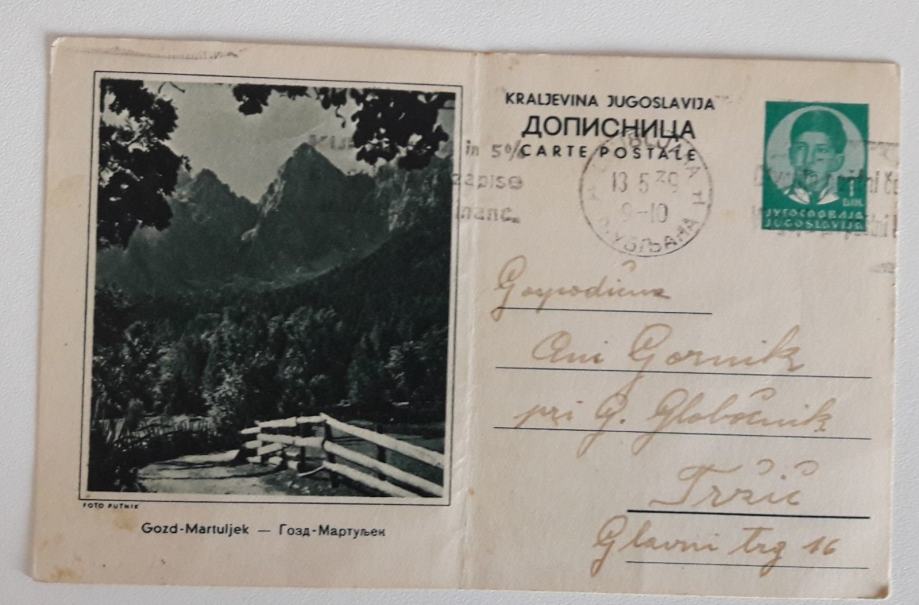 FOTO PUTNIK
Gozd-Martuljek — Гозд-Мартуљек
in 5%
zapise
KRALJEVINA JUGOSLAVIJA
ДОПИСНИЦА
CARTE POSTALE
13 5 39
9-10
ЉУБЉАНА
1
DIN.
ЈУГОСЛАВИЈА
JUGOSLAVIJA
Gospodična
Ani Gornik
pri G. Globočnik
Tržič
Glavni trg 16